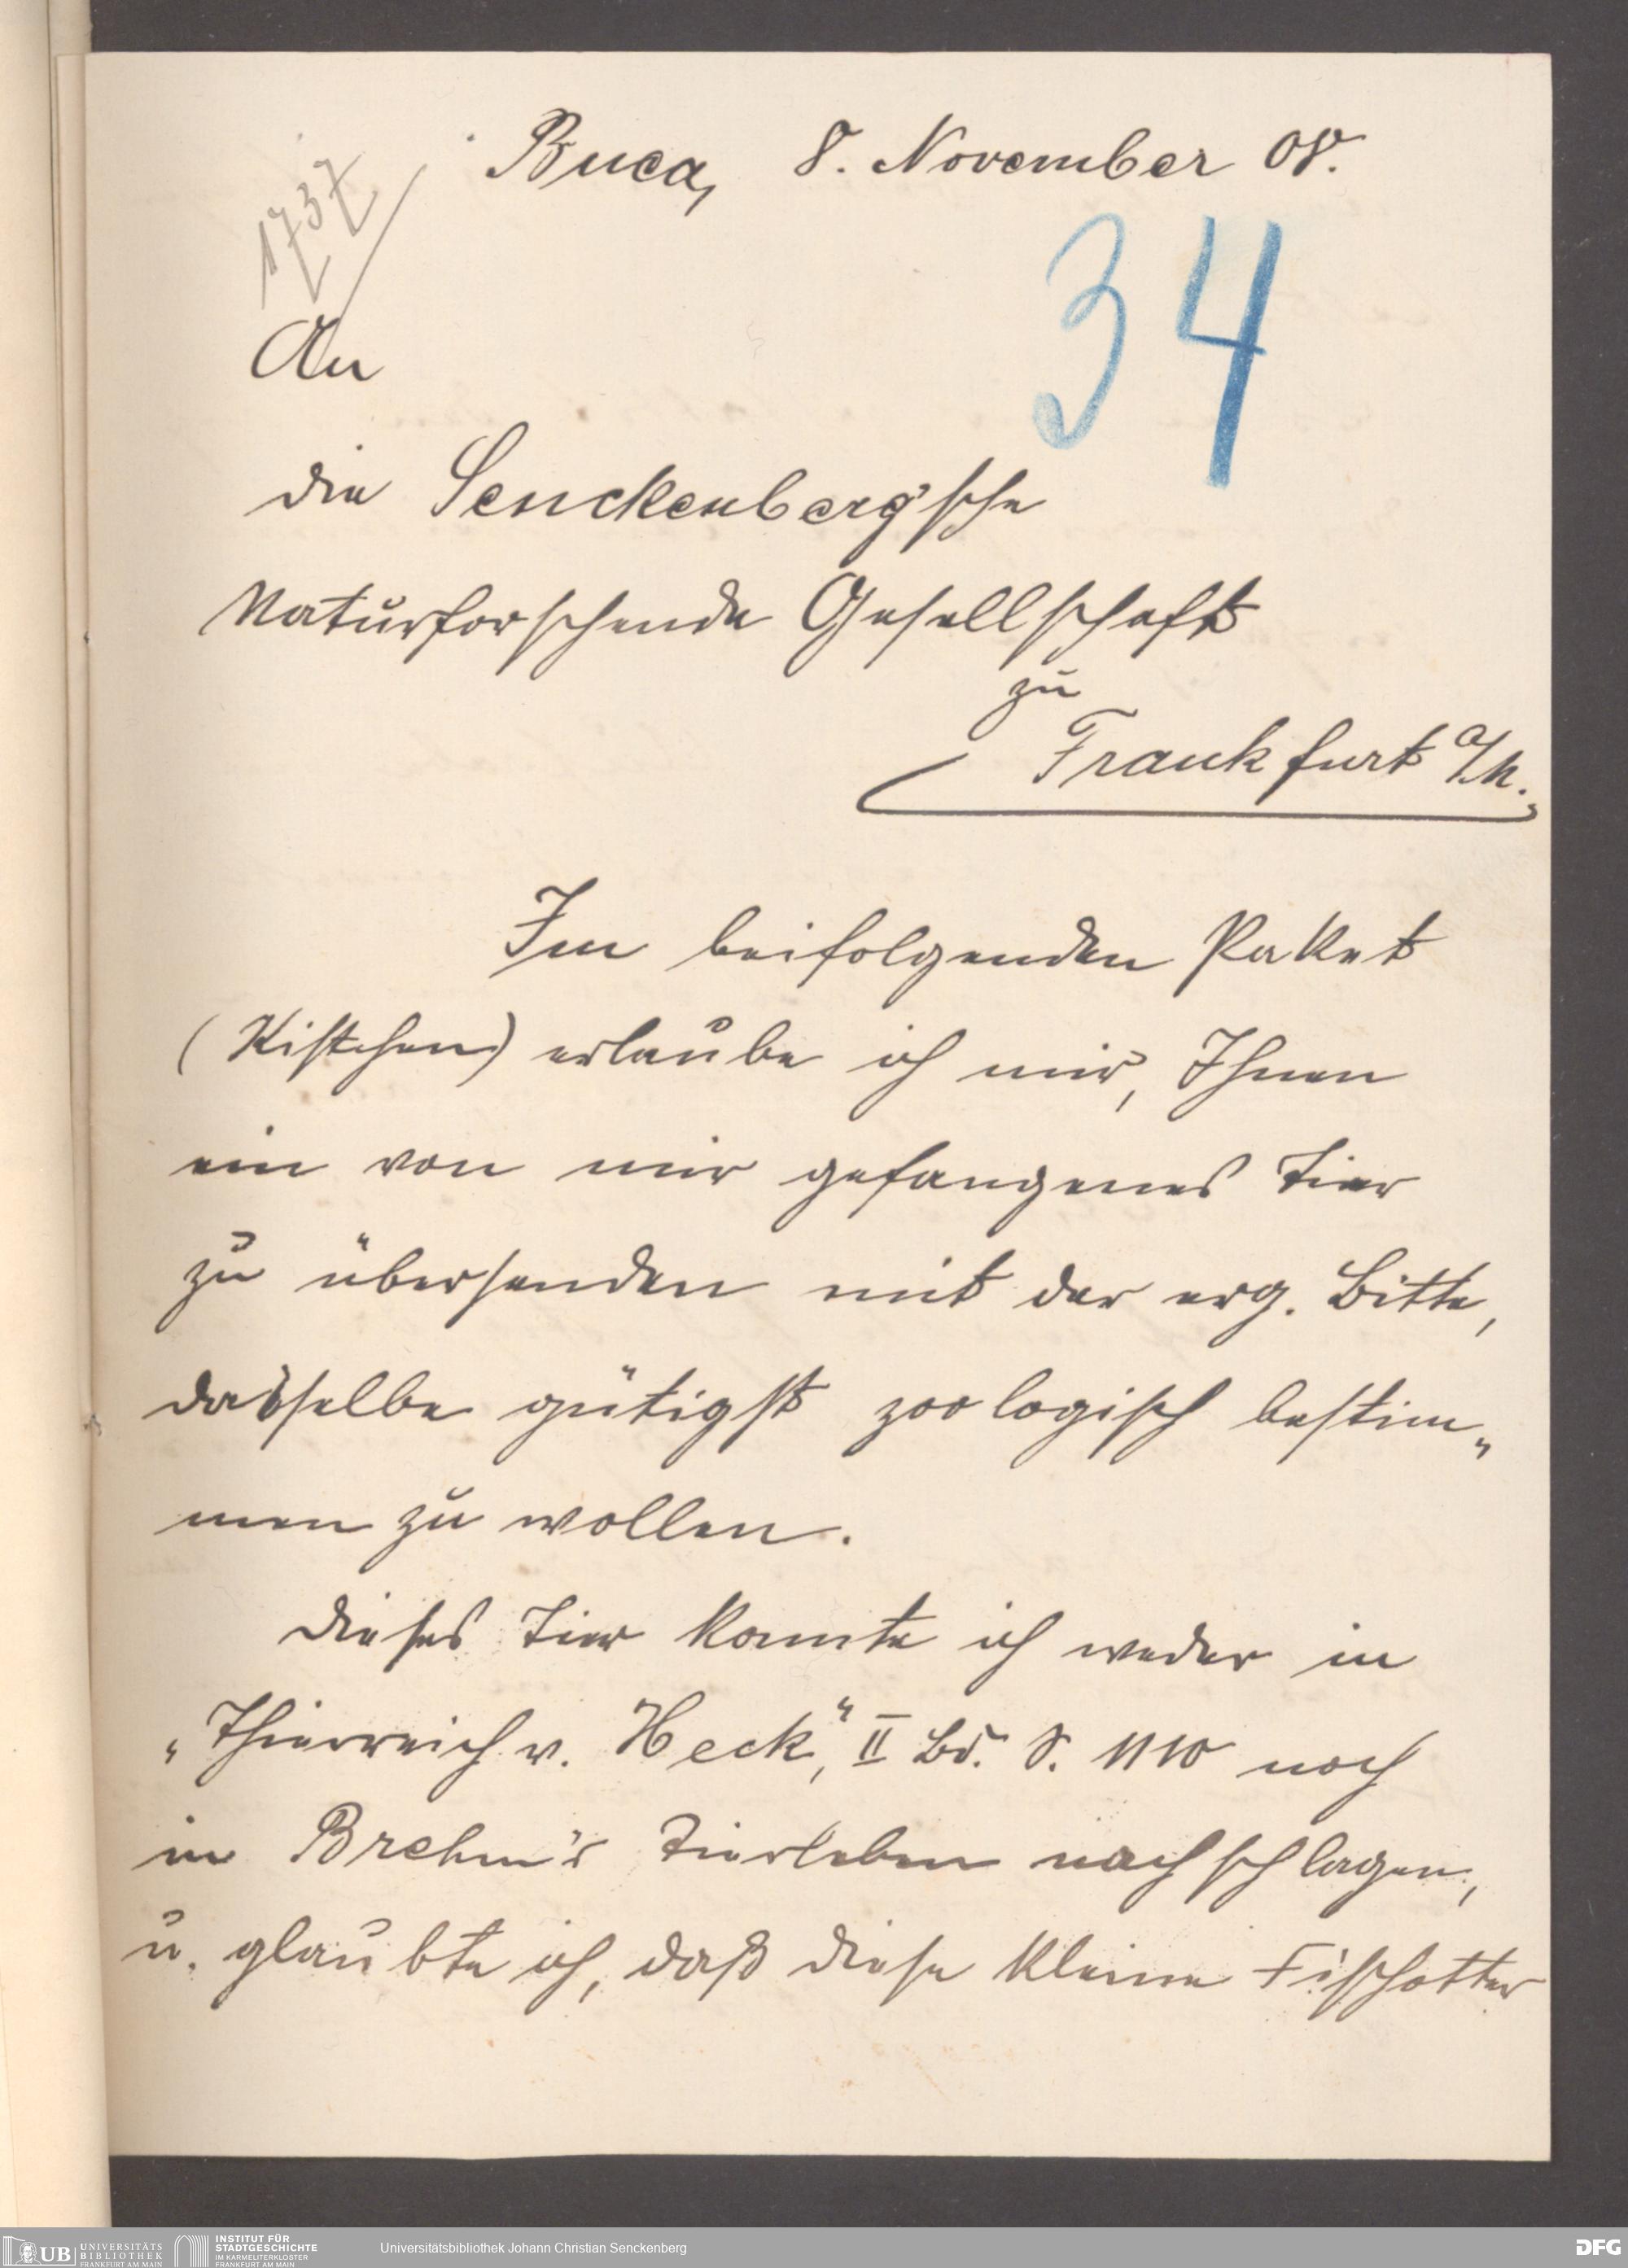 Buea, 8. November 08.
1737
34
An
die Senckenberg'sche
Naturforschende Gesellschaft
zu
Frankfurt a/M.
Im beifolgenden Paket
(Kistchen) erlaube ich mir, Ihnen
ein von mir gefangenes Tier
zu übersenden mit der erg. Bitte,
dasselbe gütigst zoologisch bestim„
men zu wollen.
Dieses Tier konnte ich weder in
„Thierreich v. Heck“, II Bd. S. 1110 noch
in Brehm's Tierleben nachschlagen,
u. glaubte ich, daß diese kleine Fischotter
UB UNIVERSITÄTS
BIBLIOTHEK
FRANKFURT AM MAIN
INSTITUT FÜR
STADTGESCHICHTE
IM KARMELITERKLOSTER
FRANKFURT AM MAIN
Universitätsbibliothek Johann Christian Senckenberg
DFG